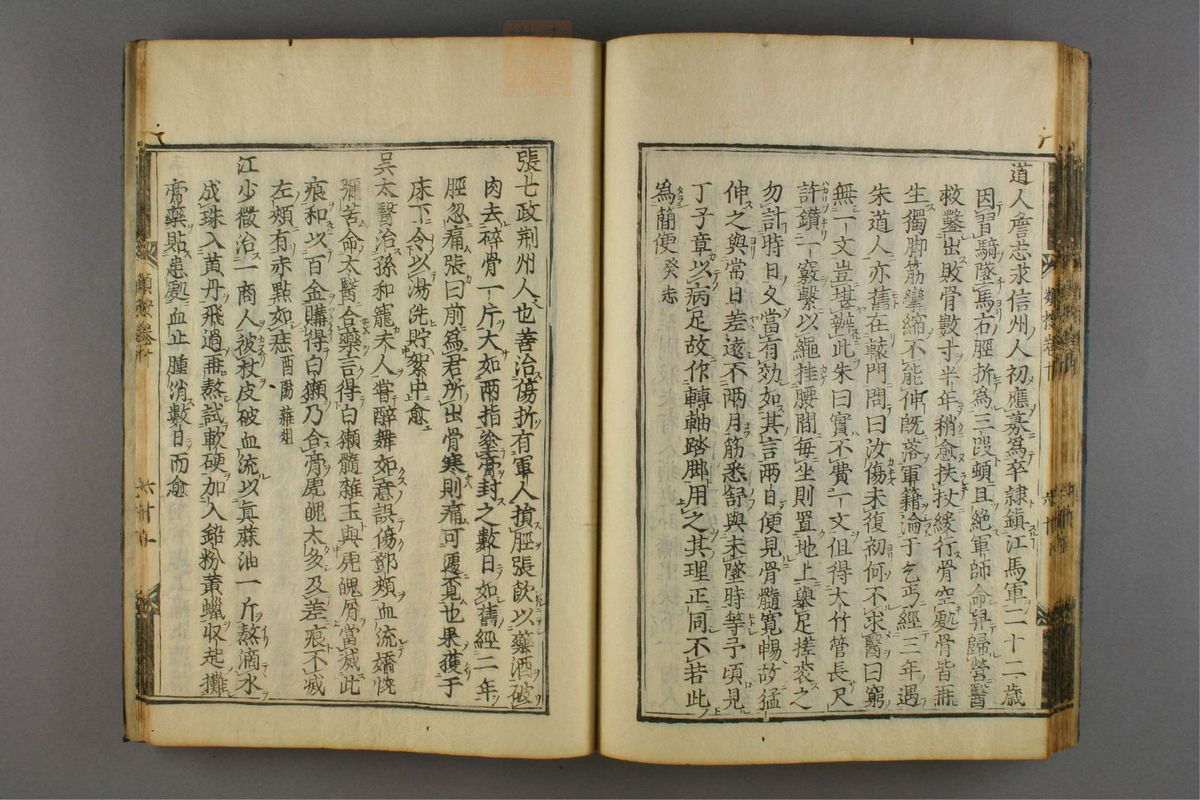 道人詹志永信州人初應募為卒隸鎮江馬軍二十二歲
因習騎墜馬右脛折為三段頓且絕軍師命舁歸營醫
救鑿出敗骨數寸半年稍愈扶杖緩行骨空處骨皆再
生獨脚筋攣縮不能伸既落軍籍淪于乞丐經三年遇
朱道人亦舊在轅門問曰汝傷未復初何不求醫曰窮
無一文豈堪辦此朱曰實不費一文但得大竹管長尺
許鑽一竅繫以繩挂腰間每坐則置地上舉足搓衮之
勿計時日久當有効如其言兩日便見骨髓寬暢故猛
伸之與常日差遠不兩月筋悉舒與未墜時等予頃見
丁子章以病足故作轉軸踏脚用之其理正同不若此
為簡便 癸志
張七政荆州人也善治傷折有軍人損脛張飲以藥酒破
肉去碎骨一片大如兩指塗膏封之數日如舊經二年
脛忽痛張曰前為君所出骨寒則痛可遽覓也果獲于
床下令以湯洗貯絮中愈
吳太醫治孫和寵夫人嘗醉舞如意誤傷鄧頰血流嬌惋
彌苦命太醫合藥言得白獺髓雜玉與虎魄屑當滅此
痕和以百金購得白獺乃合膏虎魄太多及差痕不滅
左頰有赤點如痣 酉陽雜俎
江少微治一商人被杖皮破血流以真蔴油一斤熬滴水
成珠入黃丹飛過再熬試軟硬加入鉛粉黃蠟收起攤
膏藥貼患處血止腫消數日而愈